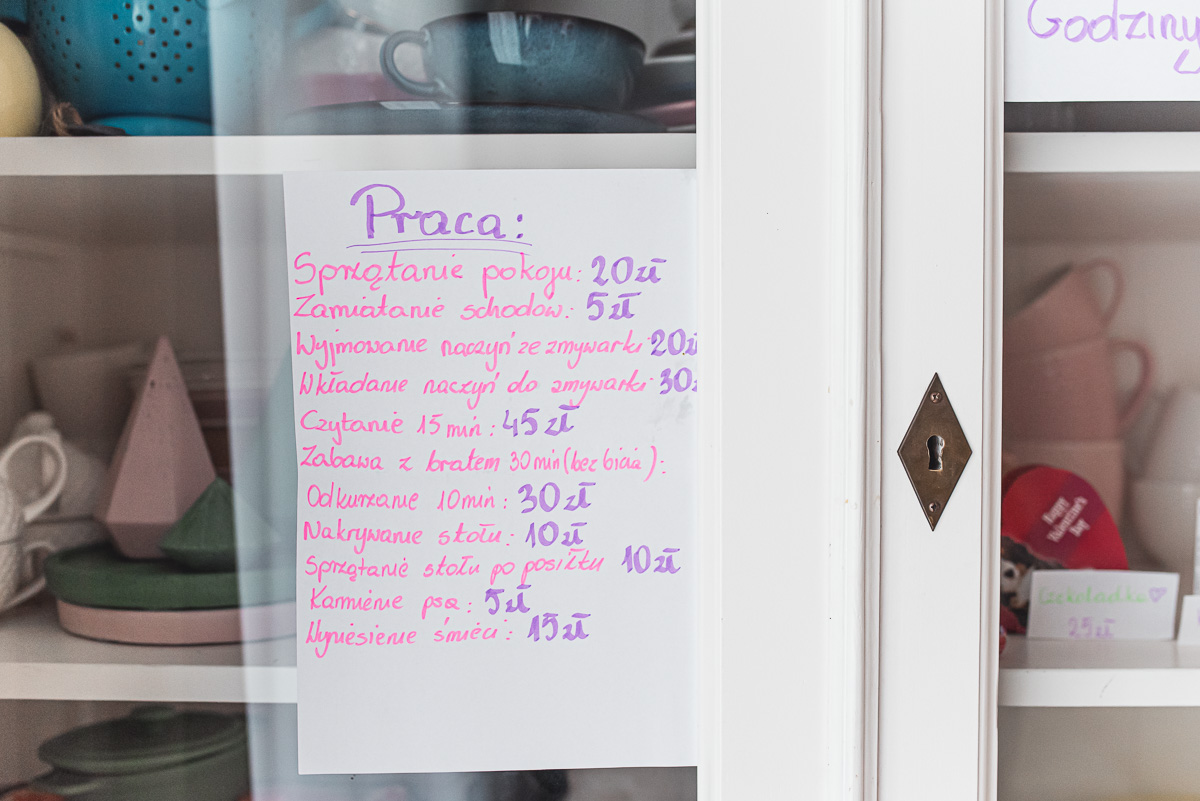 Praca:
Sprzątanie pokoju: 20zł
Zamiatanie schodów: 5zł
Wyjmowanie naczyń ze zmywarki 20zł
Wkładanie naczyń do zmywarki 30
Czytanie 15 min: 45zł
Zabawa z bratem 30 min (bez bicia):
Odkurzanie 10 min: 30zł
Nakrywanie stołu: 10zł
Sprzątanie stołu po posiłku 10zł
Karmienie psa: 5zł
Wyniesienie śmieci: 15zł
Godziny
Happy Valentine's Day
Czekoladka
25zł